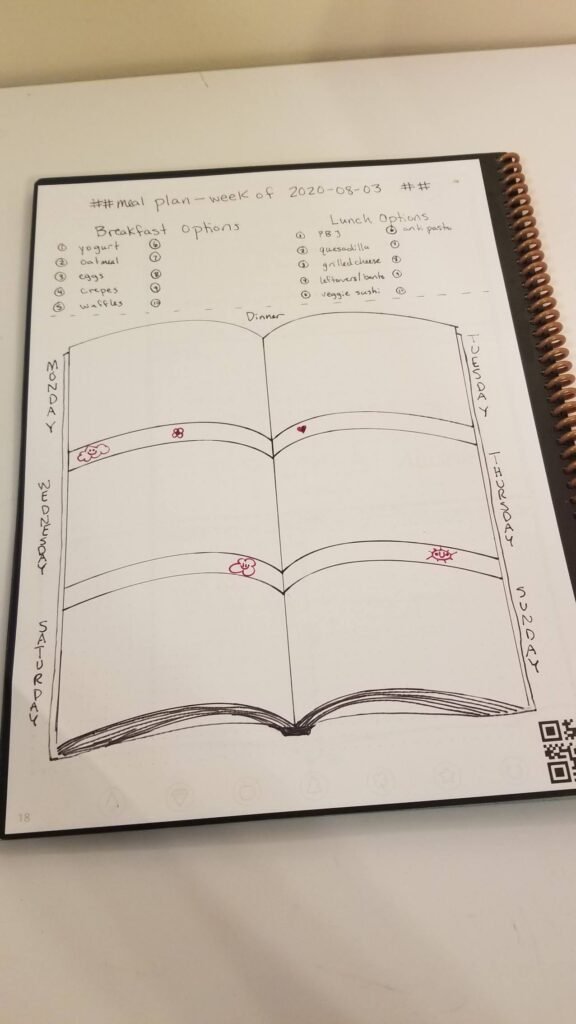 ##meal plan - week of 2020-08-03 ##
Breakfast Options
① yogurt ⑥
② oatmeal ⑦
③ eggs ⑧
④ crepes ⑨
⑤ waffles ⑩
Lunch Options
① PBJ ⑥ antipasto
② quesadilla ⑦
③ grilled cheese ⑧
④ leftovers/bento ⑨
⑤ veggie sushi ⑩
Dinner
MONDAY
TUESDAY
WEDNESDAY
THURSDAY
SATURDAY
SUNDAY
18